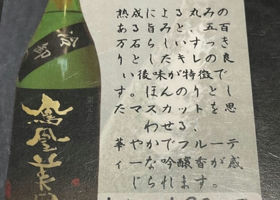 熟成による丸みの
ある旨みと、五百
万石らしいすっき
りとしたキレの良
い後味が特徴で
す。ほんのりとし
たマスカットを思
わせる、
華やかでフルーテ
ィーな吟醸香が感
じられます。
鳳凰美田